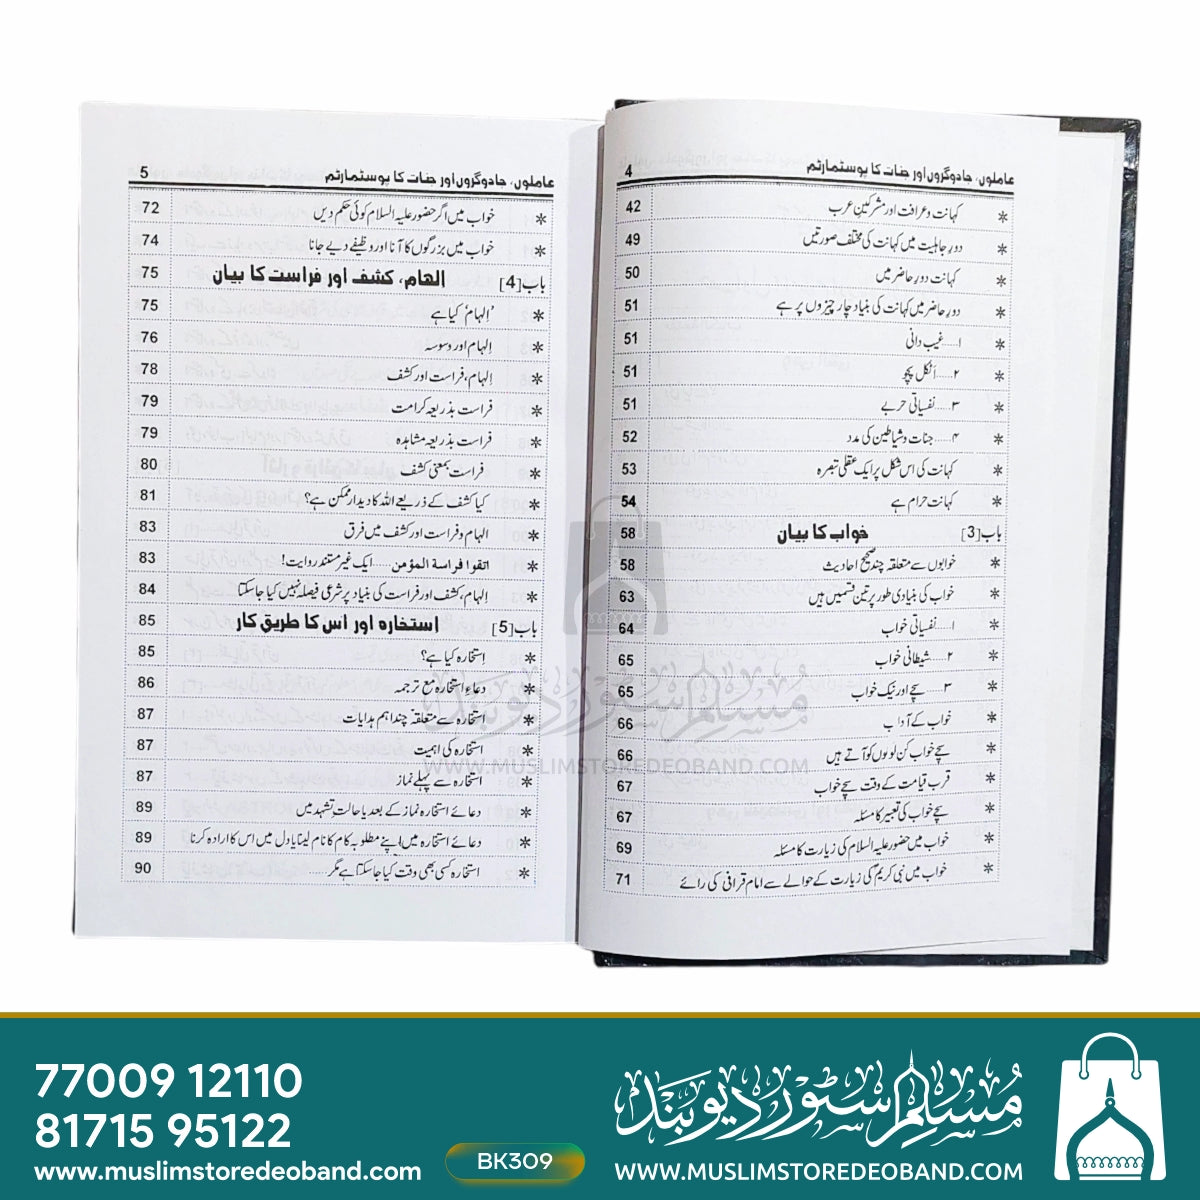 عاملوں، جادوگروں اور جنات کا پوسٹمارٹم 4
* کہانت وعرافت اور مشرکین عرب 42
* دورِ جاہلیت میں کہانت کی مختلف صورتیں 49
* کہانت دورِ حاضر میں 50
* دورِ حاضر میں کہانت کی بنیاد چار چیزوں پر ہے 51
* ۱....غیب دانی 51
* ۲.....اٹکل پچو 51
* ۳.....نفسیاتی حربے 51
* ۴.....جنات وشیاطین کی مدد 52
* کہانت کی اس شکل پر ایک عقلی تبصرہ 53
* کہانت حرام ہے 54
باب[3] خواب کا بیان 58
* خوابوں سے متعلقہ چند صحیح احادیث 58
* خواب کی بنیادی طور پر تین قسمیں ہیں 63
* ۱....نفسیاتی خواب 64
* ۲.....شیطانی خواب 65
* ۳.....سچے اور نیک خواب 65
* خواب کے آداب 66
* سچے خواب کن لوگوں کو آتے ہیں 66
* قرب قیامت کے وقت سچے خواب 67
* سچے خواب کی تعبیر کا مسئلہ 67
* خواب میں حضور علیہ السلام کی زیارت کا مسئلہ 69
* خواب میں نبی کریم کی زیارت کے حوالے سے امام قرافی کی رائے 71
عاملوں، جادوگروں اور جنات کا پوسٹمارٹم 5
* خواب میں اگر حضور علیہ السلام کوئی حکم دیں 72
* خواب میں بزرگوں کا آنا اور وظیفے دیے جانا 74
باب[4] الہام، کشف اور فراست کا بیان 75
* 'الہام' کیا ہے 75
* الہام اور وسوسہ 76
* الہام، فراست اور کشف 78
* فراست بذریعہ کرامت 79
* فراست بذریعہ مشاہدہ 79
* فراست بمعنی کشف 80
* کیا کشف کے ذریعے اللہ کا دیدار ممکن ہے؟ 81
* الہام وفراست اور کشف میں فرق 83
* اتقوا فراسة المؤمن ..... ایک غیر مستند روایت! 83
* الہام، کشف اور فراست کی بنیاد پر شرعی فیصلہ نہیں کیا جاسکتا 84
باب[5] استخارہ اور اس کا طریق کار 85
* استخارہ کیا ہے؟ 85
* دعاءِ استخارہ مع ترجمہ 86
* استخارہ سے متعلقہ چند اہم ہدایات 87
* استخارہ کی اہمیت 87
* استخارہ سے پہلے نماز 87
* دعائے استخارہ نماز کے بعد یا حالت تشہد میں 89
* دعائے استخارہ میں اپنے مطلوبہ کام کا نام لینا یا دل میں اس کا ارادہ کرنا 89
* استخارہ کسی بھی وقت کیا جاسکتا ہے مگر...... 90
مسلم سٹور دیوبند
WWW.MUSLIMSTOREDEOBAND.COM
77009 12110
81715 95122
www.muslimstoredeoband.com
BK309
مسلم سٹور دیوبند
WWW.MUSLIMSTOREDEOBAND.COM